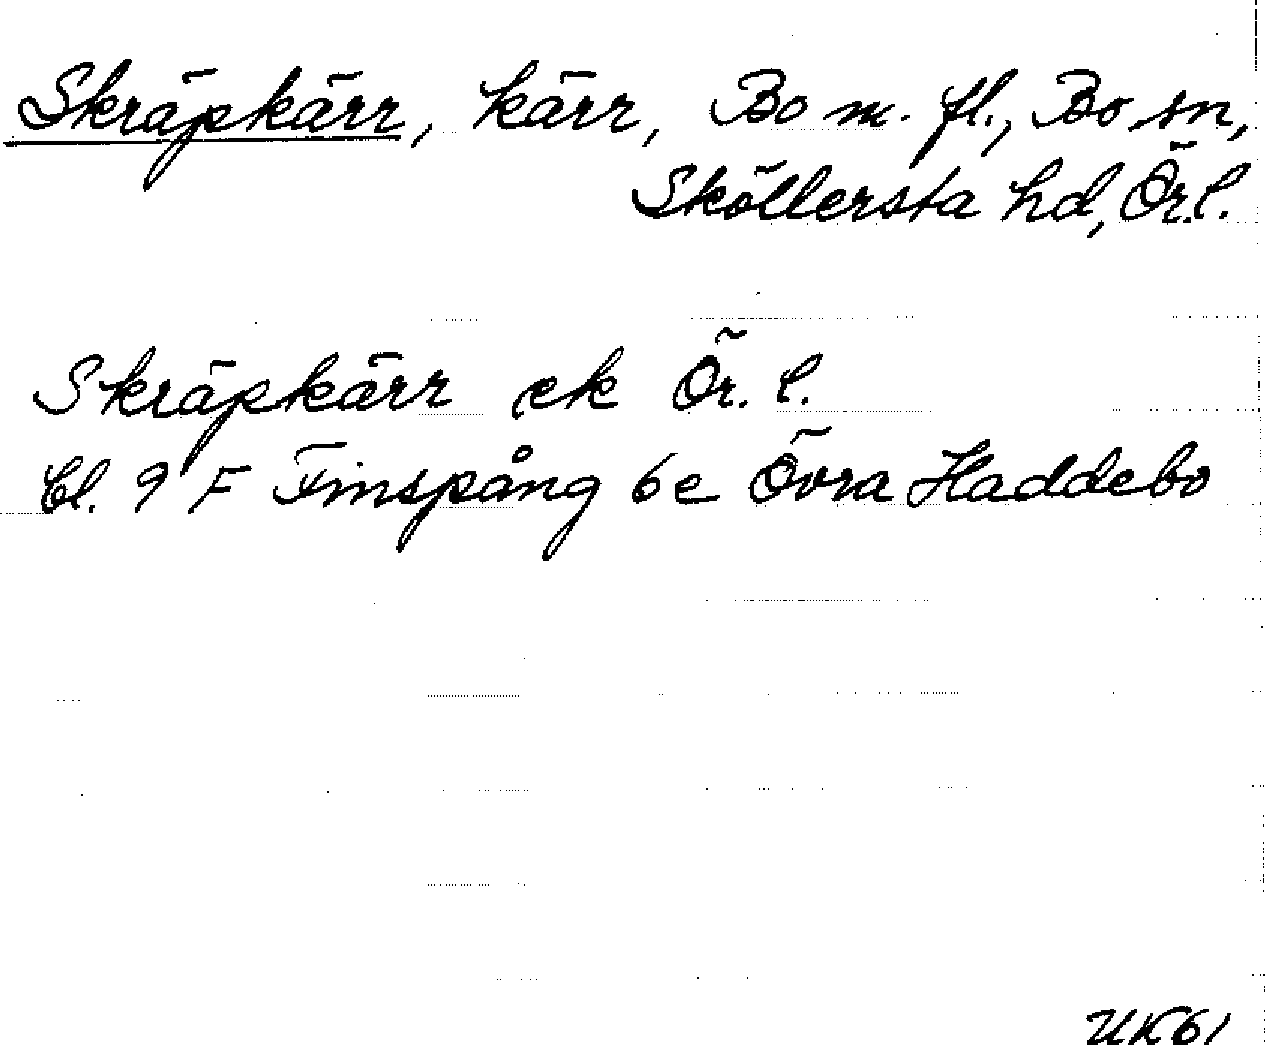 Skräpkärr, kärr, Bo m. fl., Bo sn,
Sköllersta hd, Ör.l.
Skräpkärr ek Ör. l.
Bl. 9 F Finspång 6e Övra Haddebo
UK61